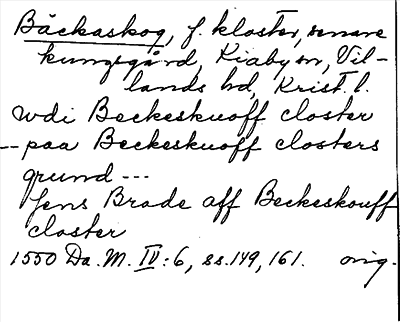 Bäckaskog, f. kloster, senare
kungsgård, Kiaby sn, Vil-
lands hd, Krist. l.
wdi Beckeskuoff closter
-- paa Beckeskuoff closters
grund ---
Jens Brade aff Beckeskouff
closter
1550 Da. M. IV: 6, ss. 149, 161. orig.